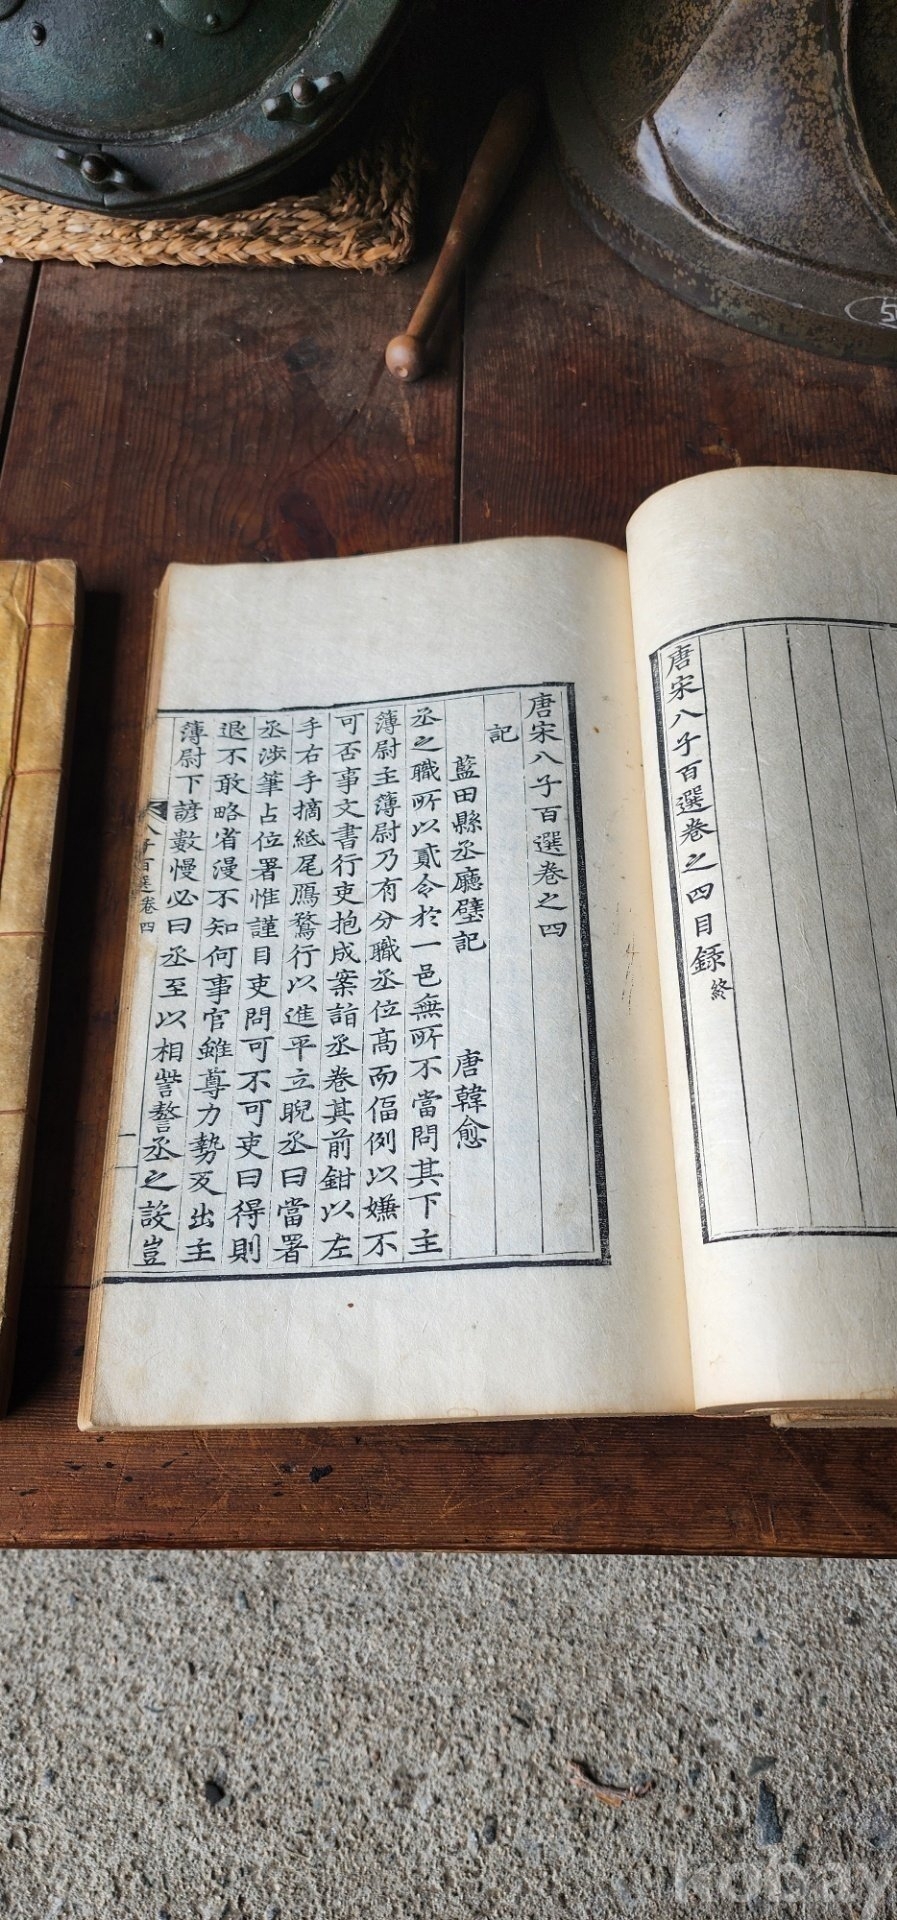 唐宋八子百選卷之四目録終
唐宋八子百選卷之四
記
藍田縣丞廳壁記 唐韓愈
丞之職所以貳令於一邑無所不當問其下主
簿尉主簿尉乃有分職丞位高而偪例以嫌不
可否事文書行吏抱成案詣丞卷其前鉗以左
手右手摘紙尾鴈鶩行以進平立睨丞曰當署
丞涉筆占位署惟謹目吏問可不可吏曰得則
退不敢略省漫不知何事官雖尊力勢反出主
簿尉下諺數慢必曰丞至以相訾謷丞之設豈
八子百選卷四
一
kobay